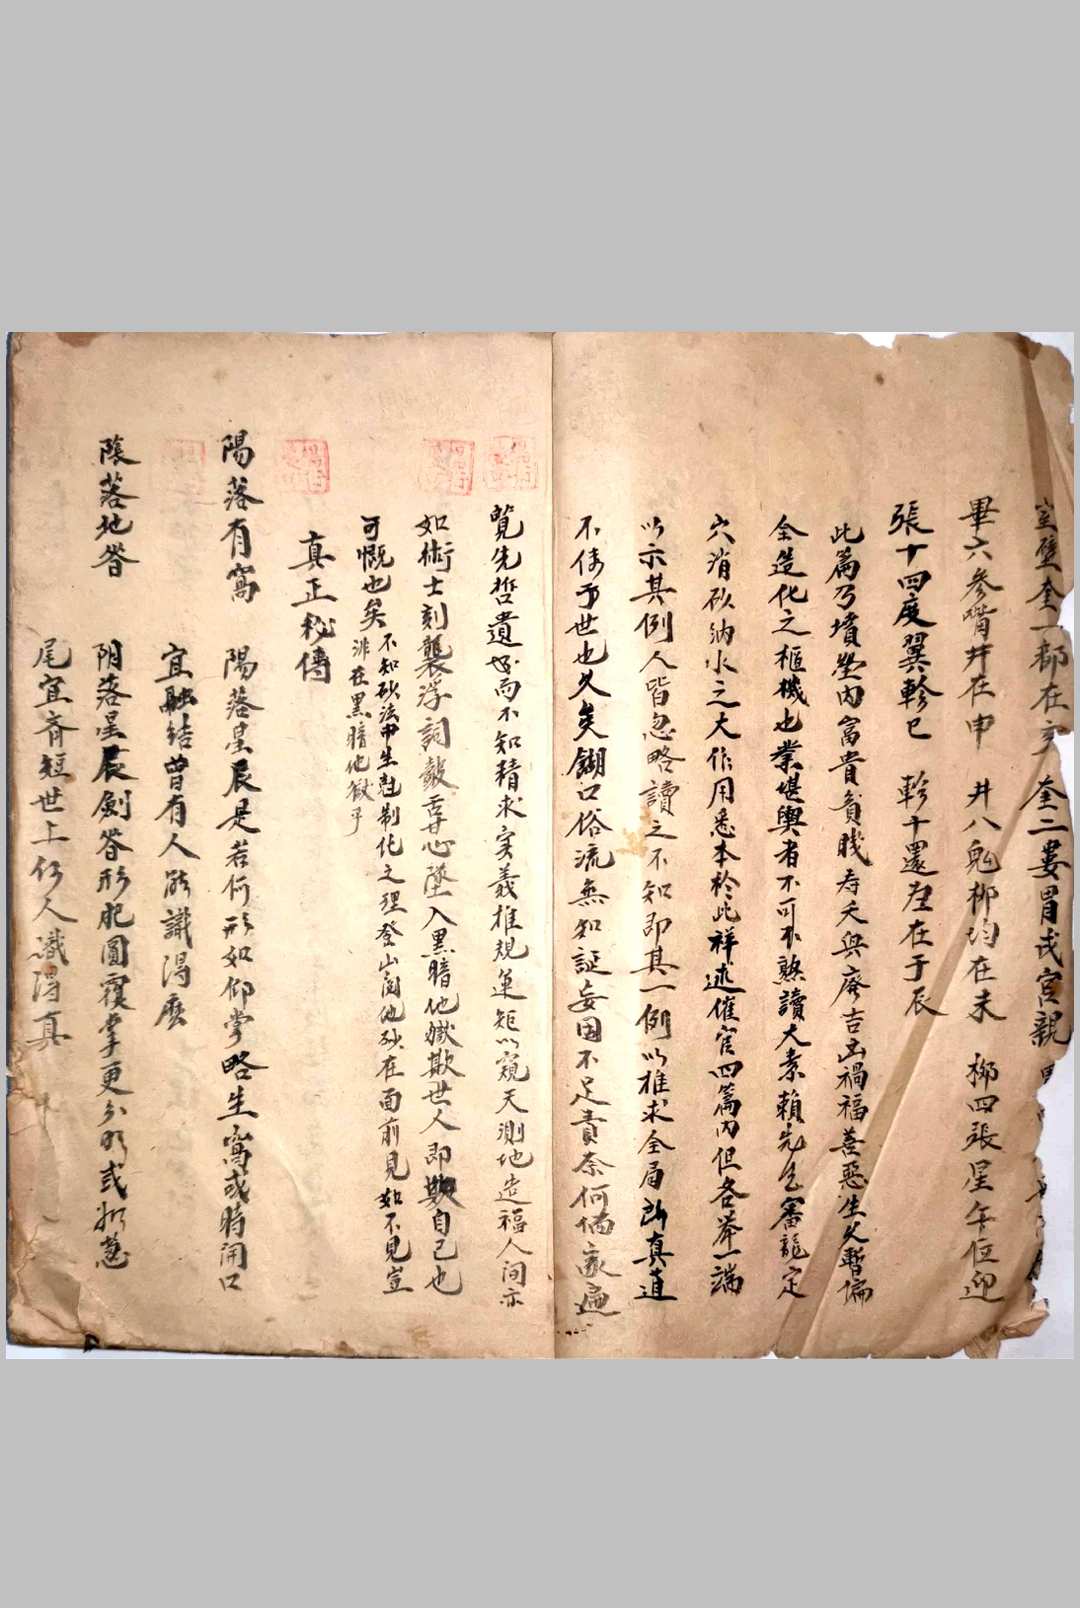 室壁奎一都在亥 奎二婁胃戌宮親
畢六參嘴井在申 井八鬼柳均在未 柳四張星午位迎
張十四度翼軫巳 軫十還產在于辰
此篇乃墳塋內富貴貧賤寿夭與廢吉凶禍福善惡生久暫偏
全造化之樞機也業堪輿者不可不熟讀大素賴先生審龍定
穴消砂納水之大作用悉本於此祥述催官四篇內但各举一端
以示其例人皆忽略讀之不知即其一例以推求全局所真道
不传於世也久矣餬口俗流無知証妄固不足責奈何倘家遍
覽先哲遺地而不知精求实義推規運矩以窺天測地造福人间亦
如術士刻襲浮詞鼓舌甘心墜入黑暗地獄欺世人即欺自己也
可慨也矣 不知砂法中生尅制化之理登山阅地砂在面前見如不見豈
非在黑暗地獄乎
真正秘傳
陽落有窩 陽落星辰是若何形如仰掌略生窩或時開口
宜融結曾有人能識得麽
陰落地笞 阴落星辰劍笞形肥圓覆掌更分明或如葱
尾宜斉短世上何人識得真